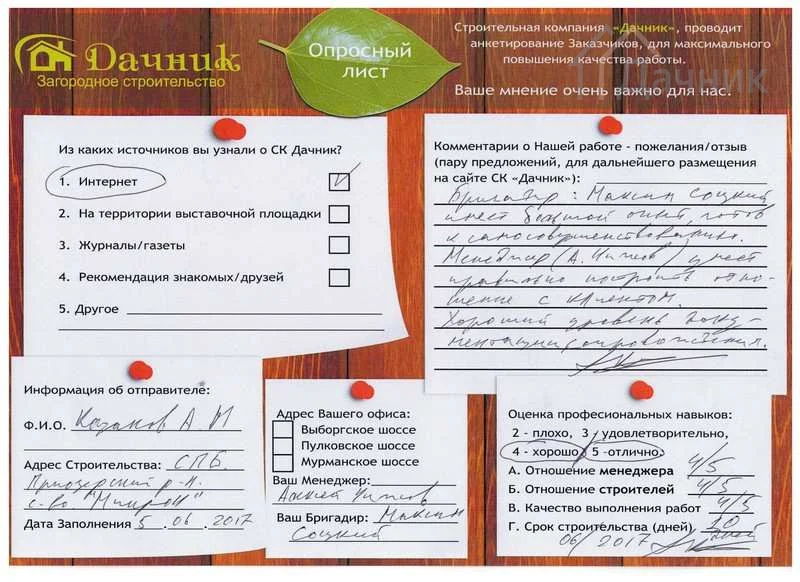 Дачник
Загородное строительство
Опросный
лист
Строительная компания «Дачник», проводит
анкетирование Заказчиков, для максимального
повышения качества работы.
Ваше мнение очень важно для нас.
Дачник
Из каких источников вы узнали о СК Дачник?
1. Интернет
2. На территории выставочной площадки
3. Журналы/газеты
4. Рекомендация знакомых/друзей
5. Другое
Комментарии о Нашей работе - пожелания/отзыв
(пару предложений, для дальнейшего размещения
на сайте СК «Дачник»):
Бригадир: Максим Соцкий
имеет большой опыт, готов
к самосовершенствованию.
Менеджер (А. ) умеет
правильно построить отно-
шение с клиентом.
Хороший уровень доку-
ментации, сопровождения.
Информация об отправителе:
Ф.И.О. Казаков А. И
Адрес Строительства: СПБ.
Приозерский р-н.
с-во
Дата Заполнения 5 . 06 . 2017
Адрес Вашего офиса:
Выборгское шоссе
Пулковское шоссе
Мурманское шоссе
Ваш Менеджер:
Алексей
Ваш Бригадир: Максим
Соцкий
Оценка професиональных навыков:
2 - плохо, 3 - удовлетворительно,
4 - хорошо, 5 -отлично.
А. Отношение менеджера 4/5
Б. Отношение строителей 4/5
В. Качество выполнения работ 4/5
Г. Срок строительства (дней) 20
06/2017 дней